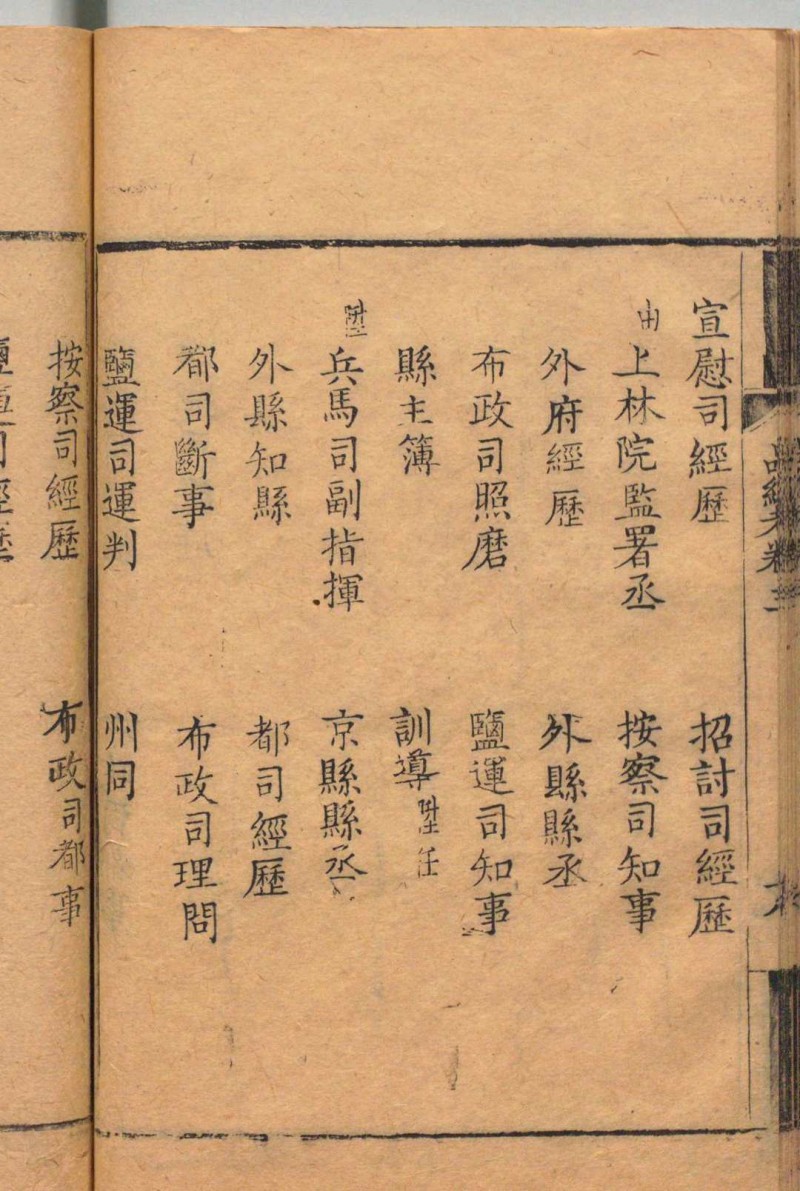 宣慰司經歷 招討司經歷
由上林院監署丞 按察司知事
外府經歷 外縣縣丞
布政司照磨 鹽運司知事
縣主簿 訓導陞任
陞兵馬司副指揮 京縣縣丞
外縣知縣 都司經歷
都司斷事 布政司理問
鹽運司運判 州同
按察司經歷 布政司都事